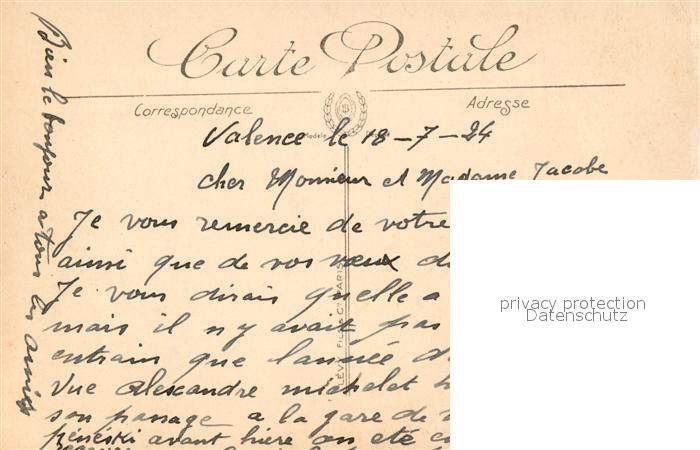 Carte Postale
Correspondance
Adresse
Valence le 18-7-24
cher Monsieur et Madame Jacobe
Je vous remercie de votre
ainsi que de vos voeux d
Je vous dirais quelle a
mais il n y avait pas
entrain que lannée d
Vue Alexandre michelet
son passage a la gare de
avant hière on eté
Bien le bonjour a tous les amies
LÉVY FILS & Cie PARIS
privacy protection
Datenschutz